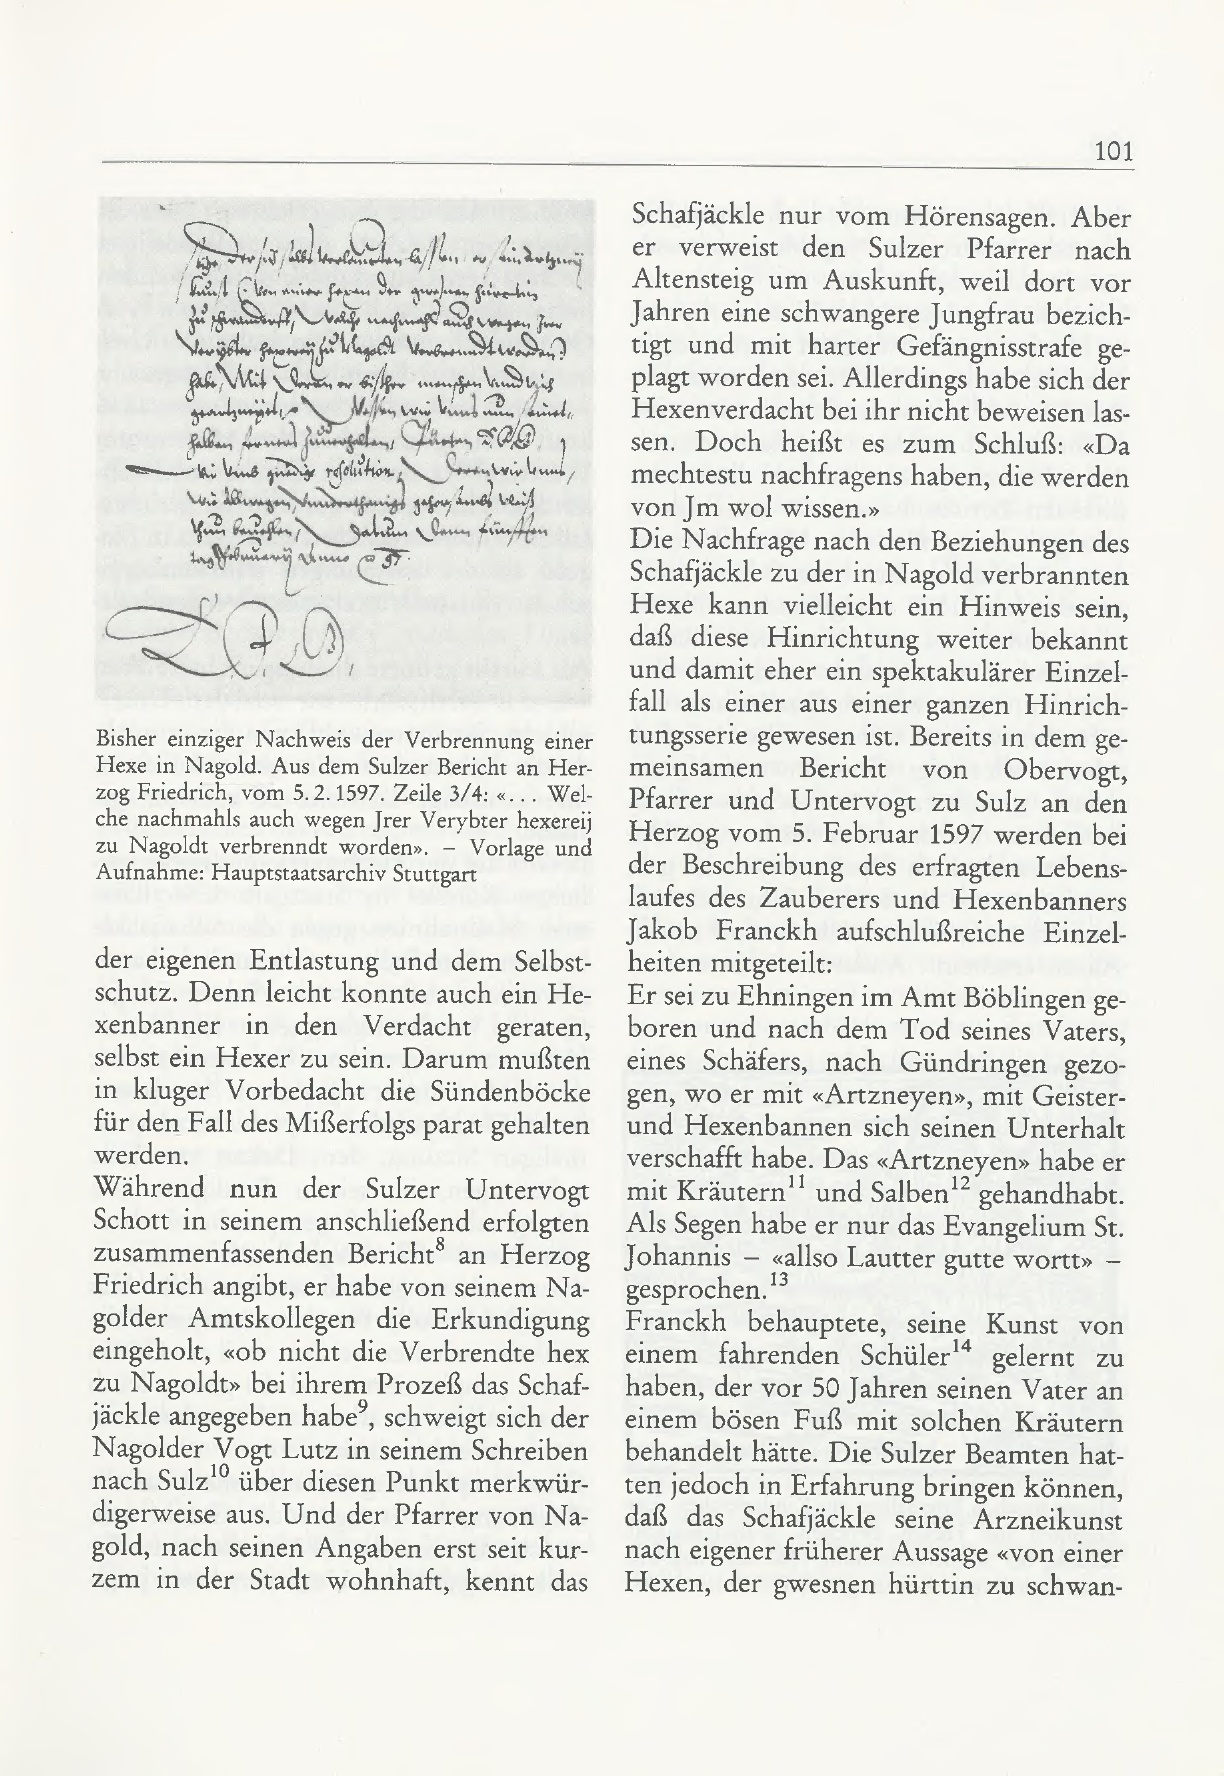 101
Bisher einziger Nachweis der Verbrennung einer
Hexe in Nagold. Aus dem Sulzer Bericht an Her-
zog Friedrich, vom 5. 2. 1597. Zeile 3/4: «... Wel-
che nachmahls auch wegen Jrer Verybter hexereij
zu Nagoldt verbrenndt worden». – Vorlage und
Aufnahme: Hauptstaatsarchiv Stuttgart
der eigenen Entlastung und dem Selbst-
schutz. Denn leicht konnte auch ein He-
xenbanner in den Verdacht geraten,
selbst ein Hexer zu sein. Darum mußten
in kluger Vorbedacht die Sündenböcke
für den Fall des Mißerfolgs parat gehalten
werden.
Während nun der Sulzer Untervogt
Schott in seinem anschließend erfolgten
zusammenfassenden Bericht⁸ an Herzog
Friedrich angibt, er habe von seinem Na-
golder Amtskollegen die Erkundigung
eingeholt, «ob nicht die Verbrendte hex
zu Nagoldt» bei ihrem Prozeß das Schaf-
jäckle angegeben habe⁹, schweigt sich der
Nagolder Vogt Lutz in seinem Schreiben
nach Sulz¹⁰ über diesen Punkt merkwür-
digerweise aus. Und der Pfarrer von Na-
gold, nach seinen Angaben erst seit kur-
zem in der Stadt wohnhaft, kennt das
Schafjäckle nur vom Hörensagen. Aber
er verweist den Sulzer Pfarrer nach
Altensteig um Auskunft, weil dort vor
Jahren eine schwangere Jungfrau bezich-
tigt und mit harter Gefängnisstrafe ge-
plagt worden sei. Allerdings habe sich der
Hexenverdacht bei ihr nicht beweisen las-
sen. Doch heißt es zum Schluß: «Da
mechtestu nachfragens haben, die werden
von Jm wol wissen.»
Die Nachfrage nach den Beziehungen des
Schafjäckle zu der in Nagold verbrannten
Hexe kann vielleicht ein Hinweis sein,
daß diese Hinrichtung weiter bekannt
und damit eher ein spektakulärer Einzel-
fall als einer aus einer ganzen Hinrich-
tungsserie gewesen ist. Bereits in dem ge-
meinsamen Bericht von Obervogt,
Pfarrer und Untervogt zu Sulz an den
Herzog vom 5. Februar 1597 werden bei
der Beschreibung des erfragten Lebens-
laufes des Zauberers und Hexenbanners
Jakob Franckh aufschlußreiche Einzel-
heiten mitgeteilt:
Er sei zu Ehningen im Amt Böblingen ge-
boren und nach dem Tod seines Vaters,
eines Schäfers, nach Gündringen gezo-
gen, wo er mit «Artzneyen», mit Geister-
und Hexenbannen sich seinen Unterhalt
verschafft habe. Das «Artzneyen» habe er
mit Kräutern¹¹ und Salben¹² gehandhabt.
Als Segen habe er nur das Evangelium St.
Johannis – «allso Lautter gutte wortt» –
gesprochen.¹³
Franckh behauptete, seine Kunst von
einem fahrenden Schüler¹⁴ gelernt zu
haben, der vor 50 Jahren seinen Vater an
einem bösen Fuß mit solchen Kräutern
behandelt hätte. Die Sulzer Beamten hat-
ten jedoch in Erfahrung bringen können,
daß das Schafjäckle seine Arzneikunst
nach eigener früherer Aussage «von einer
Hexen, der gwesnen hürttin zu schwan-